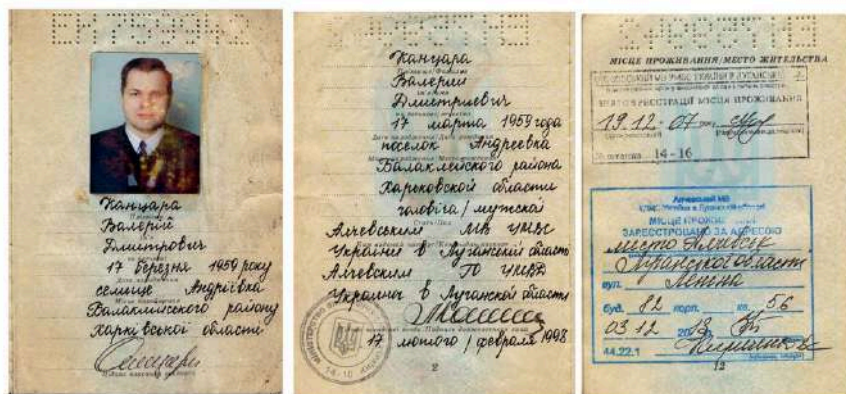 Канцара
Валерій
Дмитрович
17 березня 1959 року
селище Андріївка
Балаклійського району
Харківської області
Канцара
Валерий
Дмитриевич
17 марта 1959 года
поселок Андреевка
Балаклейского района
Харьковской области
чоловіча / мужской
Алчевським МВ УМВС
України в Луганській області
Алчевским ГО УМВД
Украины в Луганской области
17 лютого / февраля 1998
2
МІСЦЕ ПРОЖИВАННЯ/МЕСТО ЖИТЕЛЬСТВА
РЕЄСТРАЦІЇ МІСЦЯ ПРОЖИВАННЯ
19.12 07
14-16
Алчевський МВ
МІСЦЕ
ЗАРЕЄСТРОВАНО ЗА АДРЕСОЮ
місто Алчевськ
Луганської області
вул. Леніна
буд. 82 корп. кв 56
03 12 20
44.22.1
12